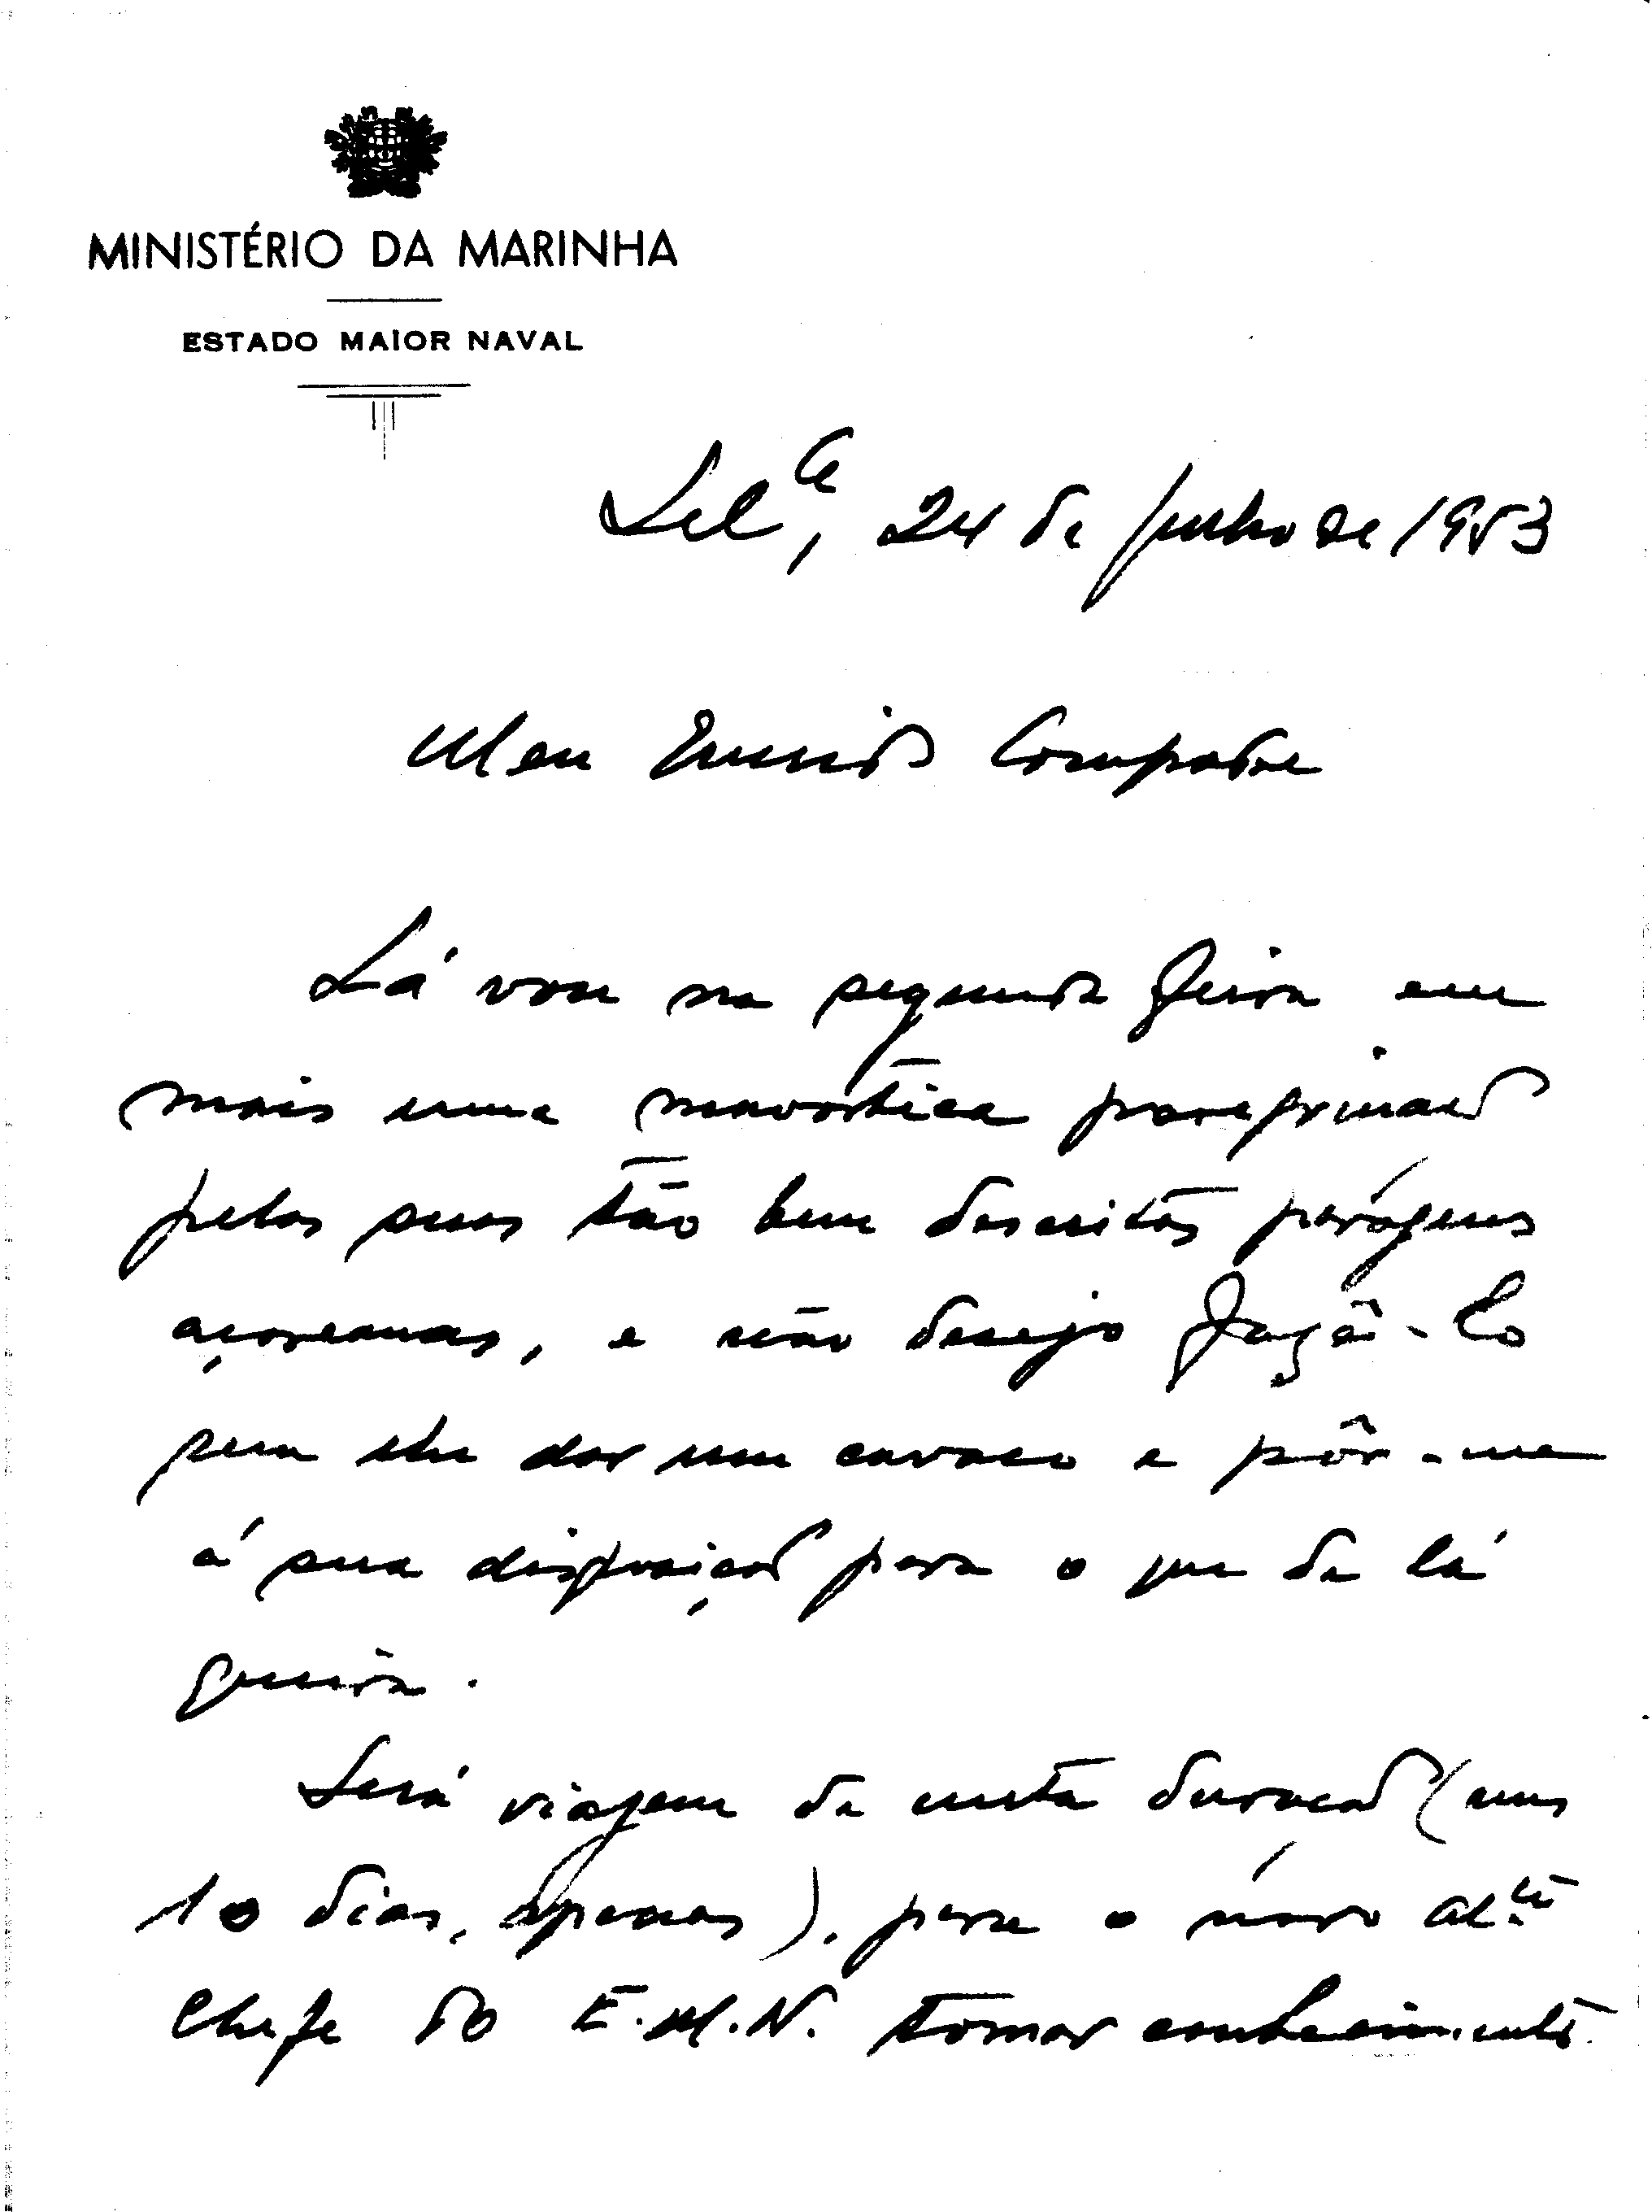 MINISTÉRIO DA MARINHA
ESTADO MAIOR NAVAL
24 de Julho de 1953
Meu Compadre
Lá vou na segunda feira em
mais uma mavórtica peregrinação
pelas suas tão bem descritas paragens
açoreanas, e não desejo fazê-lo
sem lhe dar um cavaco e pôr-me
á sua disposição para o que de lá
queira.
Será viagem de curta duração (uns
10 dias, apenas), para o nóvo Alte
Chefe do E.M.N. tomar conhecimento